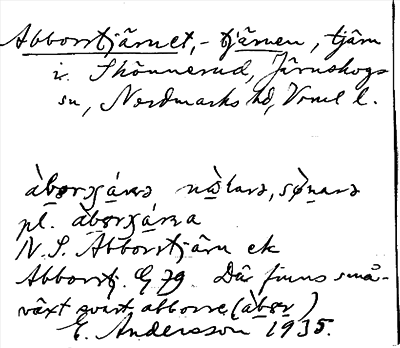 Abborrtjärnet, - tjärnen, tjärn
i Skönnerud, Järnskogs
sn, Nordmarks hd, Vrml l.
àbørɟá̀rnə no̱larə, sø̱narə
pl. àbørɟá̀rna
N. S. Abborrtjärn ek
Abborrtj. G 79. Där finns små-
växt svart abborre (àbør)
E. Andersson 1935.